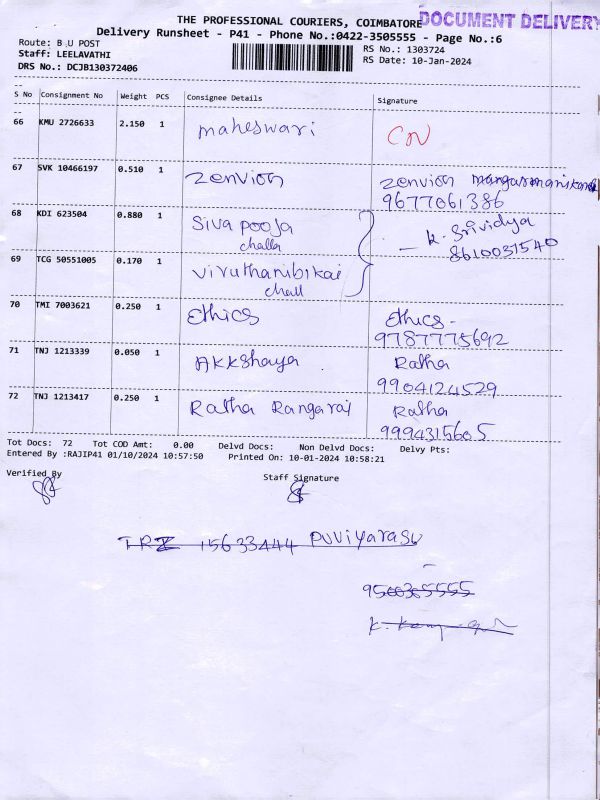 THE PROFESSIONAL COURIERS, COIMBATORE DOCUMENT DELIVERY
Delivery Runsheet - P41 - Phone No.:0422-3505555 - Page No.:6
Route: B U POST
RS No.: 1303724
Staff: LEELAVATHI
RS Date: 10-Jan-2024
DRS No.: DCJB130372406
S No Consignment No Weight PCS Consignee Details Signature
66 KMU 2726633 2.150 1 Maheswari CN
67 SVK 10466197 0.510 1 Zenvion Zenvion
9677061386
68 KDI 623504 0.880 1 Siva pooja K. Srividya
challa 8610031540
69 TCG 50551005 0.170 1 Viruthambikai
chall
70 TMI 7003621 0.250 1 Ethics Ethics -
9787775692
71 TNJ 1213339 0.050 1 AKKshaya Ratha
9904124529
72 TNJ 1213417 0.250 1 Ratha Rangaraj Ratha
9994315605
Tot Docs: 72 Tot COD Amt: 0.00 Delvd Docs: Non Delvd Docs: Delvy Pts:
Entered By :RAJIP41 01/10/2024 10:57:50 Printed On: 10-01-2024 10:58:21
Verified By Staff Signature
TRZ 15633444 Puviyarasu
9500365555